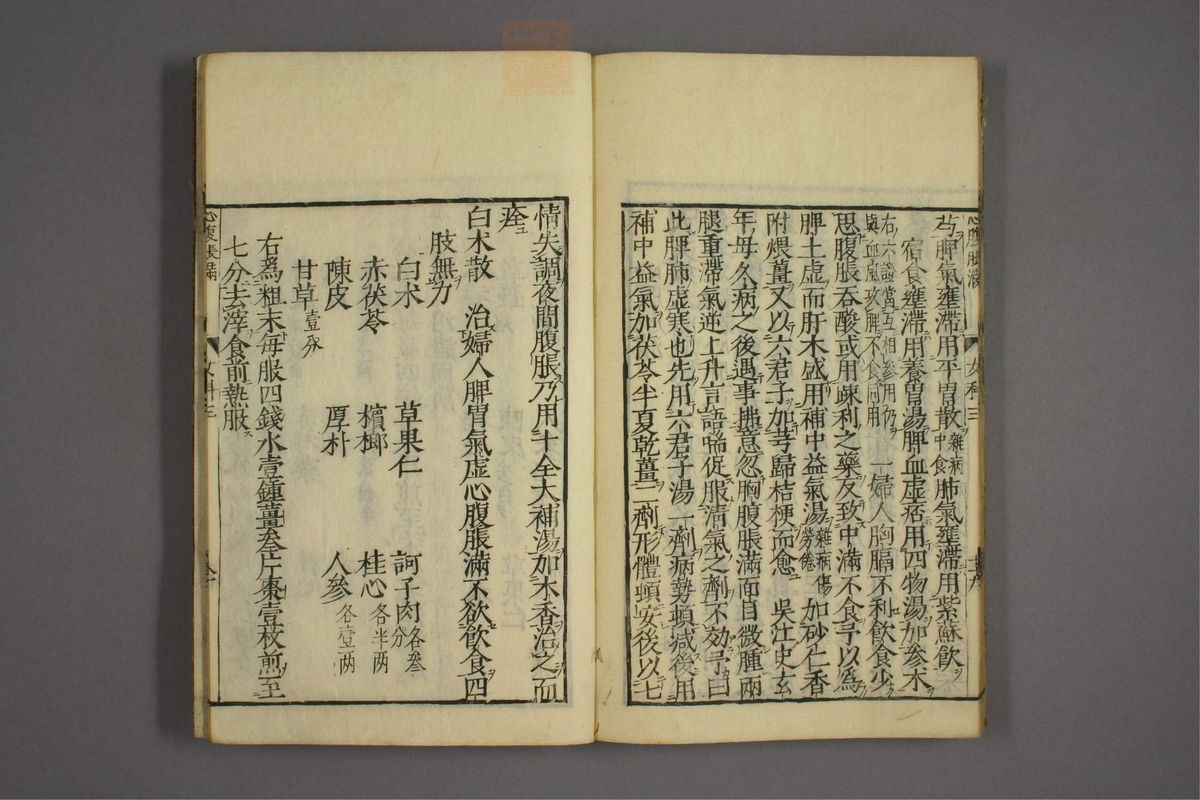 心腹脹滿 女科三
芍脾氣壅滯用平胃散雜病中食肺氣壅滯用紫蘇飲
宿食壅滯用養胃湯脾血虛痞用四物湯加參术
右六證當互相參用仍與血風攻脾不食同用 一婦人胸膈不利飲食少
思腹脹吞酸或用疎利之藥反致中滿不食予以為
脾土虛而肝木盛用補中益氣湯雜病勞倦傷加砂仁香
附煨薑又以六君子加芎歸桔梗而愈 吳江史玄
年母久病之後遇事拂意忽胸腹脹滿面目微腫兩
腿重滯氣逆上升言語喘促服清氣之劑不効予曰
此脾肺虛寒也先用六君子湯一劑病勢頓减後用
補中益氣加茯苓半夏乾薑二劑形體頓安後以七
情失調夜間腹脹乃用十全大補湯加木香治之而
痊
白术散 治婦人脾胃氣虛心腹脹滿不欲飲食四
肢無力
白术 草果仁 訶子肉各叁分
赤茯苓 檳榔 桂心各半两
陳皮 厚朴 人參各壹两
甘草壹分
右為粗末每服四錢水壹鍾薑叁片棗壹枚煎至
七分去滓食前熱服
心腹脹滿 女科三